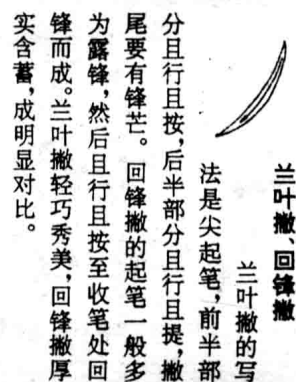 兰叶撇、回锋撇
兰叶撇的写
法是尖起笔，前半部
分且行且按，后半部分且行且提，撇
尾要有锋芒。回锋撇的起笔一般多
为露锋，然后且行且按至收笔处回
锋而成。兰叶撇轻巧秀美，回锋撇厚
实含蓄，成明显对比。